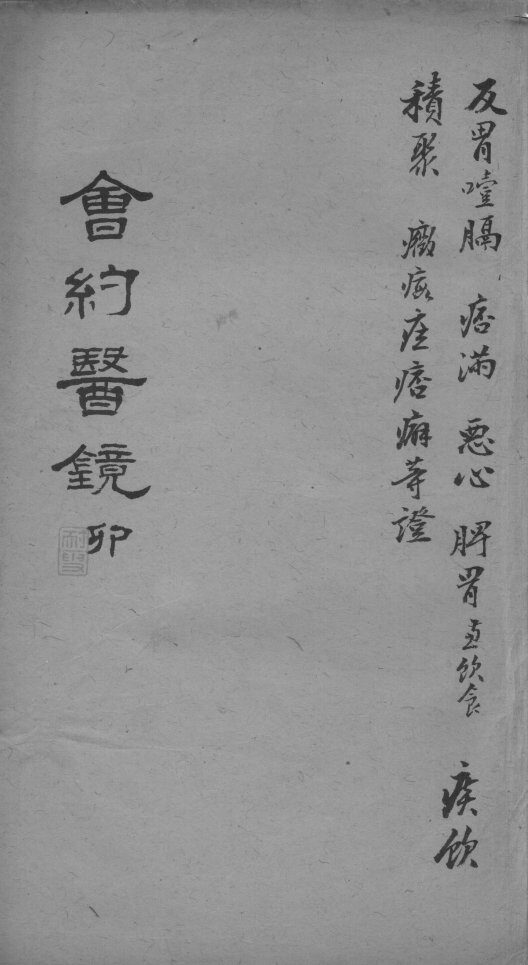 反胃噎膈 痞滿 惡心 脾胃並飲食 痰飲
積聚 癥瘕痃痞癖等證
會約醫鏡 卯